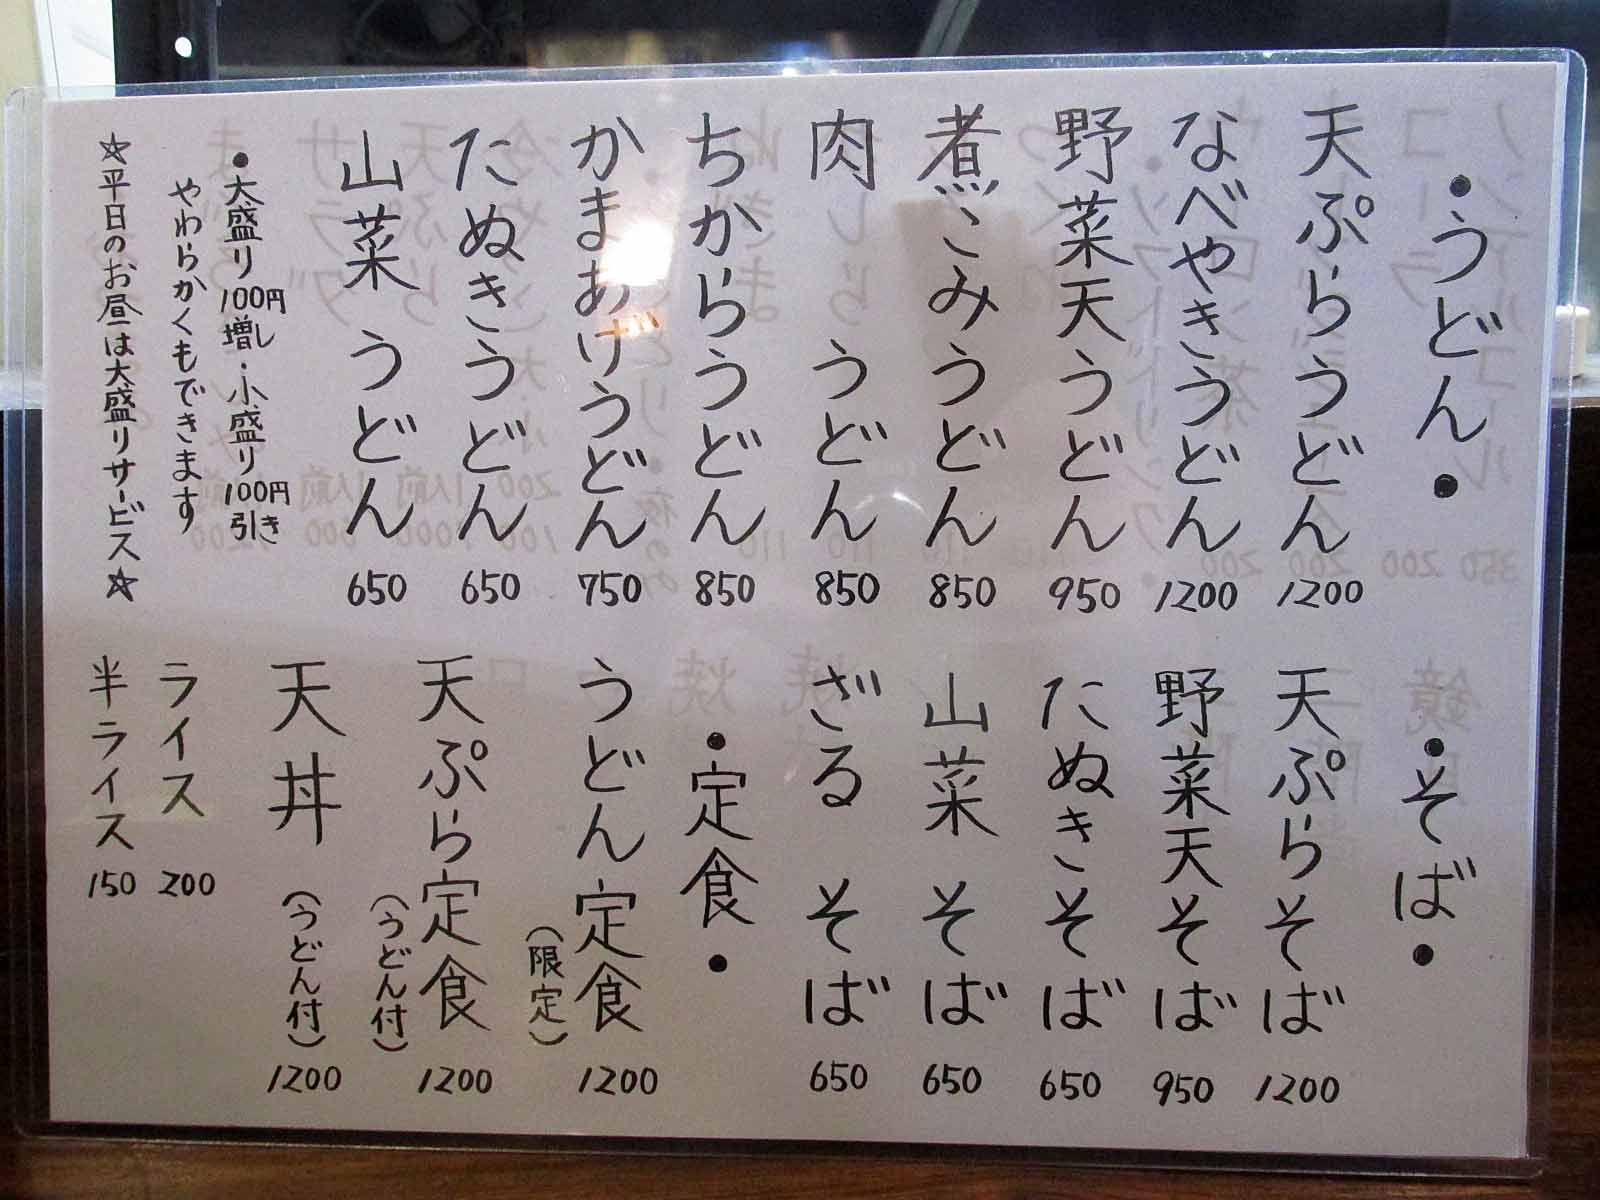 ・うどん・
天ぷらうどん 1200
なべやきうどん 1200
野菜天うどん 950
煮こみうどん 850
肉 うどん 850
ちからうどん 850
かまあげうどん 750
たぬきうどん 650
山菜 うどん 650
・大盛り100円増し・小盛り100円引き
やわらかくもできます
☆平日のお昼は大盛りサービス☆
・そば・
天ぷらそば 1200
野菜天そば 950
たぬきそば 650
山菜 そば 650
ざる そば 650
・定食・
うどん定食 1200
(限定)
天ぷら定食 1200
(うどん付)
天丼 (うどん付) 1200
ライス 200
半ライス 150